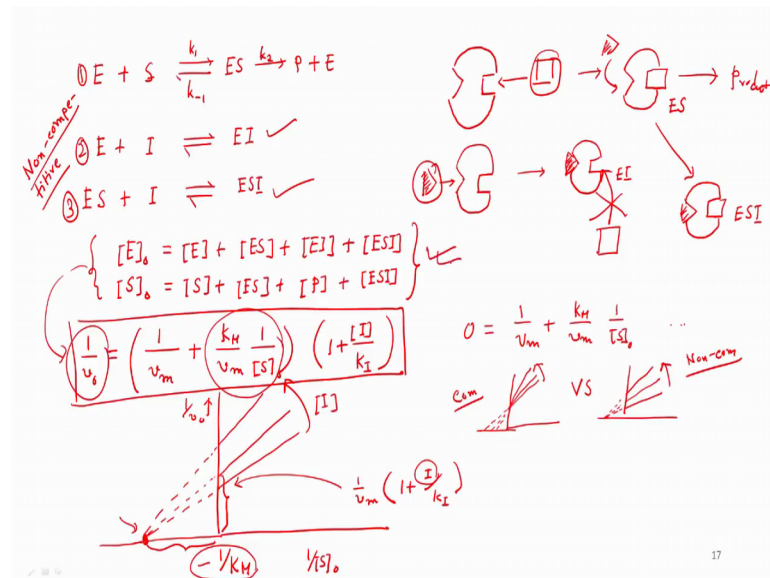 Non-compe-
titive
① E + S ⇌ ES → P + E
k₁
k₋₁
k₂
② E + I ⇌ EI ✓
③ ES + I ⇌ ESI ✓
[E]₀ = [E] + [ES] + [EI] + [ESI]
[S]₀ = [S] + [ES] + [P] + [ESI]
1/v₀ = (1/vm + kM/vm 1/[S]₀) (1 + [I]/kI)
1/v₀ ↑
[I]
1/vm (1 + I/kI)
- 1/KM
1/[S]₀
I
→ Product
ES
I
EI
ESI
0 = 1/vm + kM/vm 1/[S]₀ ...
Com
VS
Non-com
17